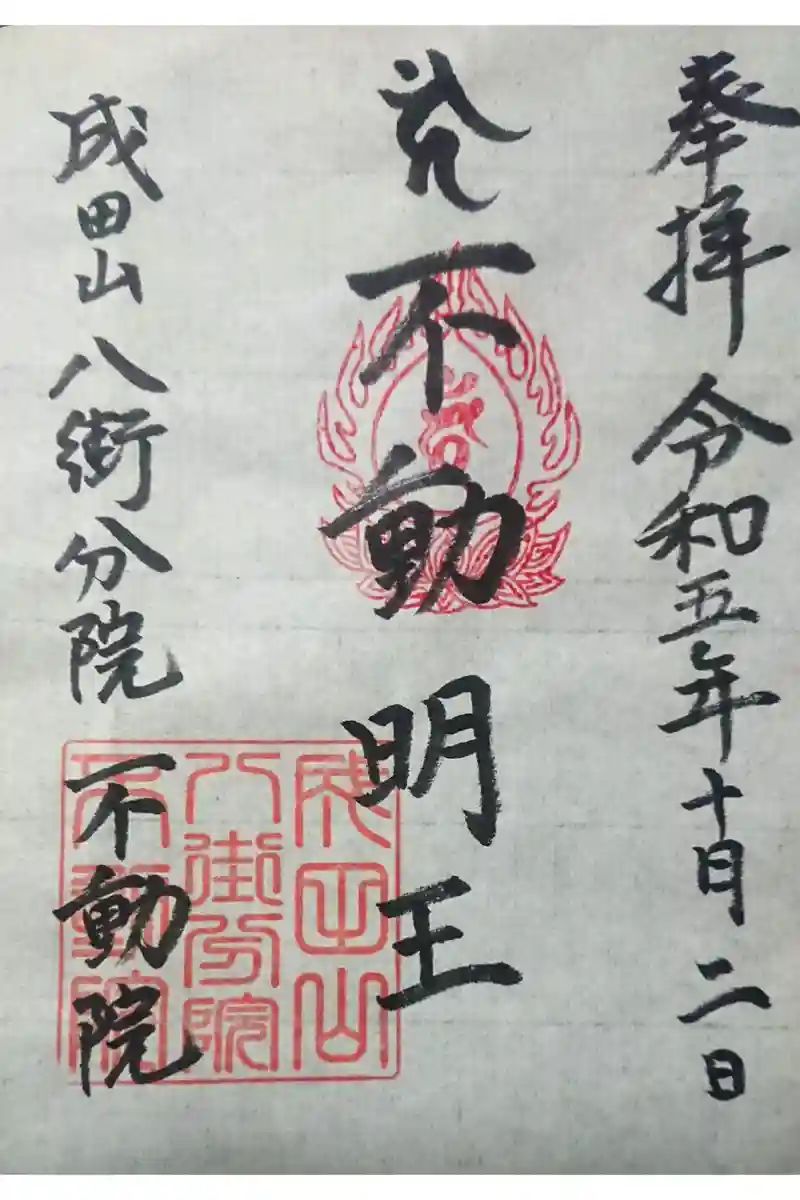 奉拝 令和五年十月二日
不動明王
成田山 八街分院 不動院
成田山
八街分院
不動院